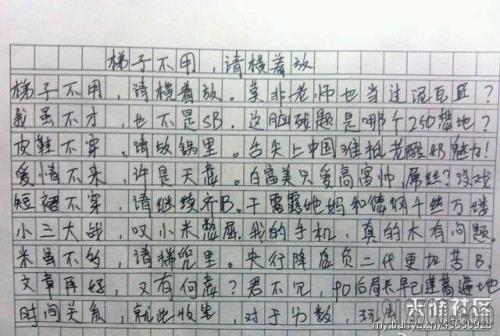 梯子不用，请横着放
梯子不用，请横着放。莫非老师也当过泥瓦匠？
我虽不才，也不是SB。这脑残题是哪个250撸地？
皮鞋不穿，请放锅里。舌尖上中国 准抵老酸奶魅力！
爱情不来，许是天意。白富美只爱高富帅，屌丝？没戏
短裙不穿，请继续齐B。干露露她妈和俺妈千丝万缕
小三大战，叹小米憋屈。我的手机，真的木有问题
米虽不多，请梯兜里。央行降息负二代更加苦B。
文章再好，又有何意？君不见，90后局长早已遍地
时间关系，就此收笔。对于分数，
天涯社区